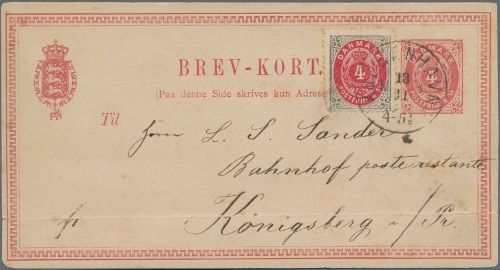 BREV-KORT.
(Paa denne Side skrives kun Adress
DANMARK
4
POSTFRIM
4
13
11
4-5½
Til
Herrn L. S. Sander
Bahnhof poste restante
fr. Königsberg i/Pr.